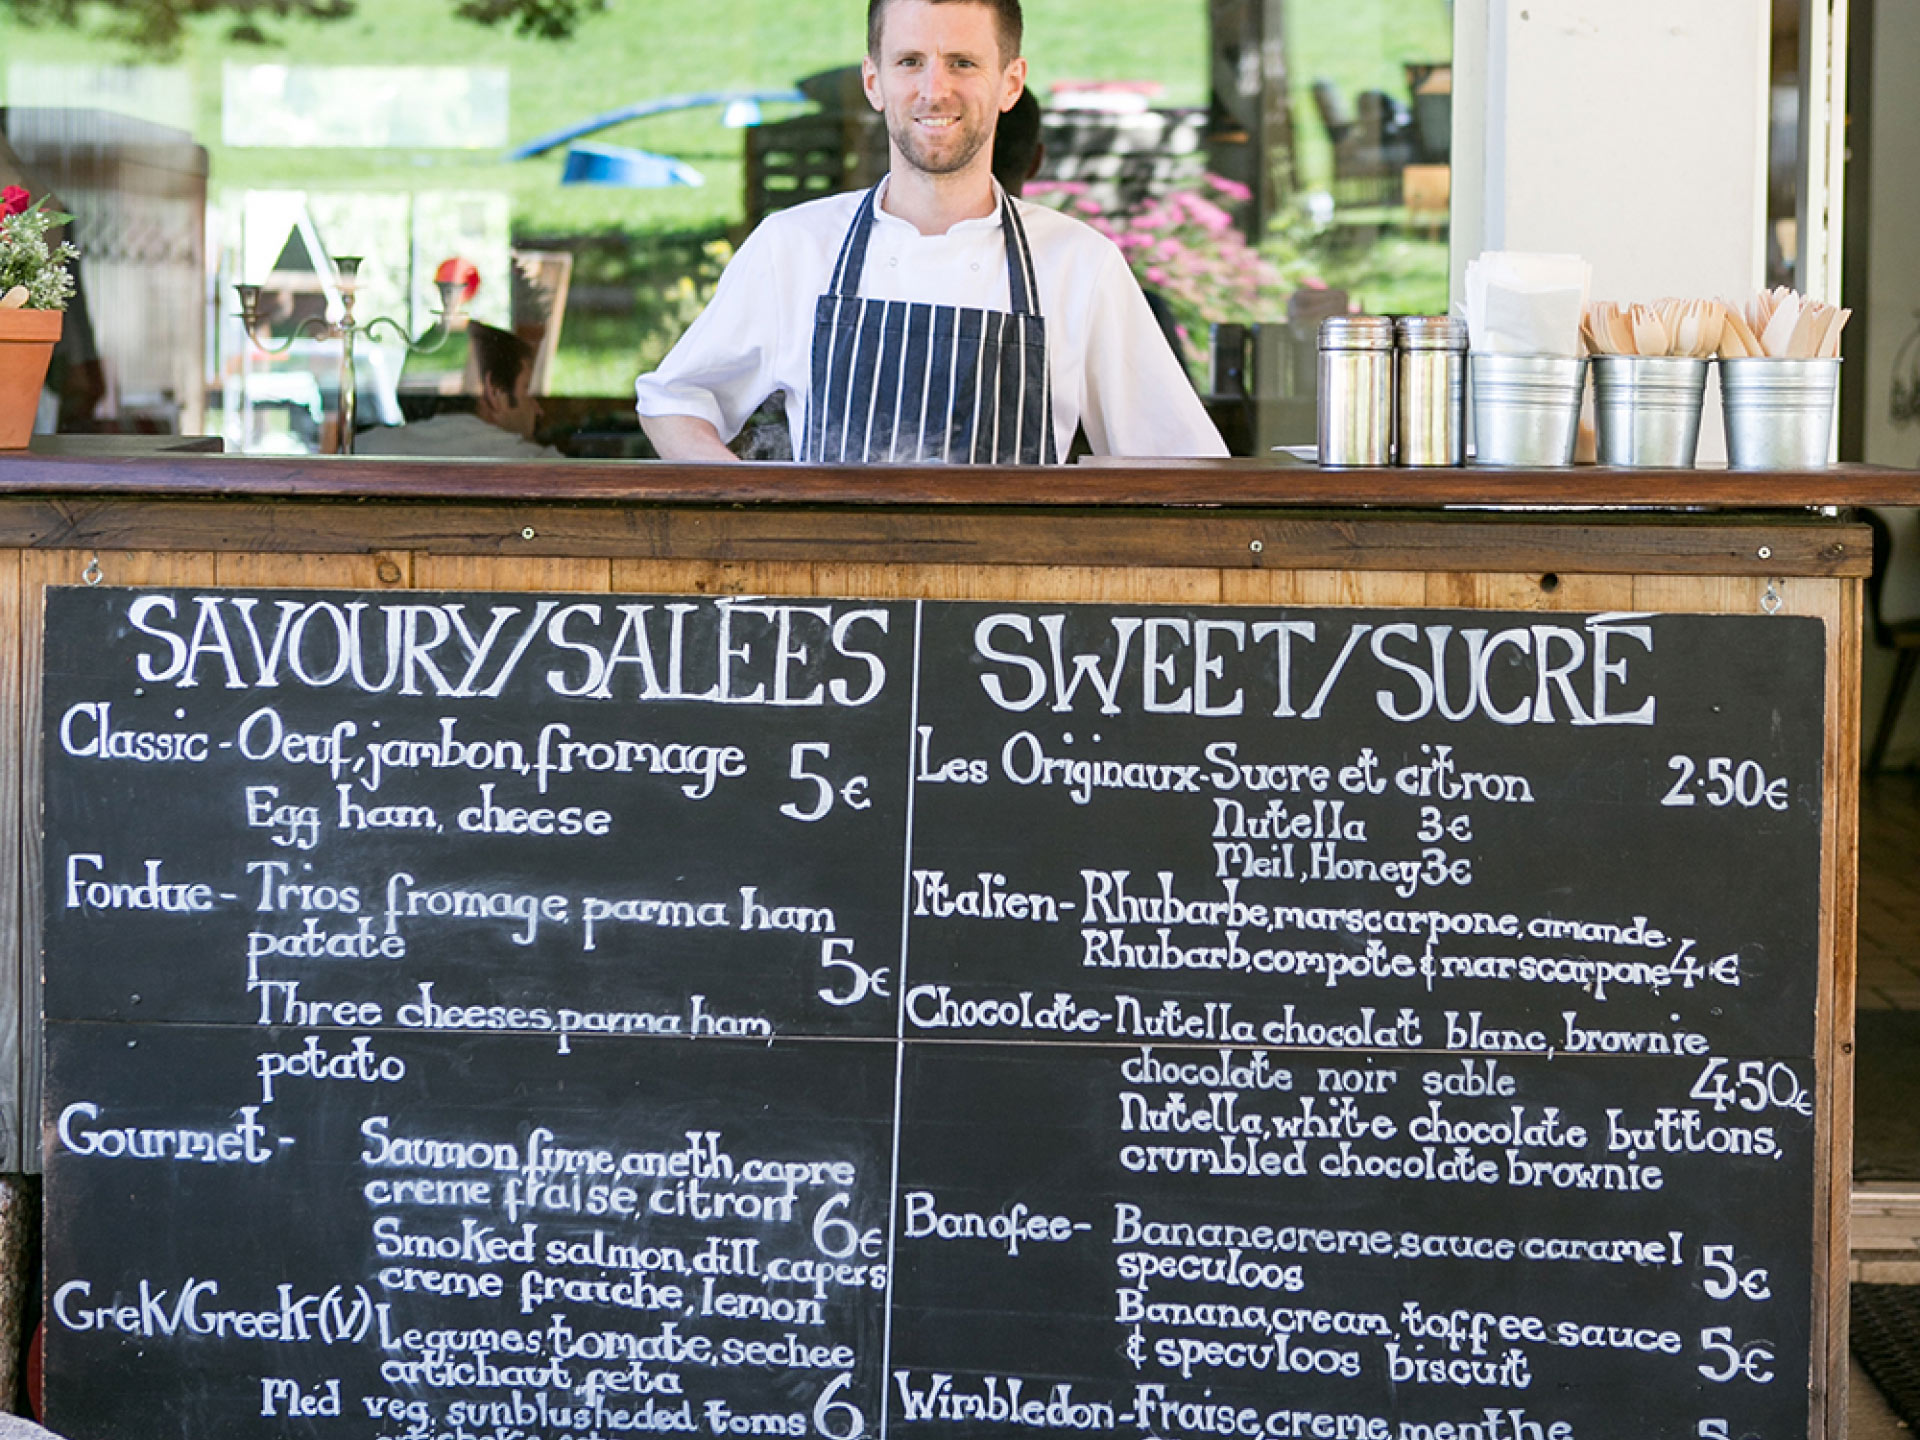 SAVOURY/SALÉES
Classic - Oeuf, jambon, fromage
Egg ham, cheese
5€
Fondue - Trios fromage, parma ham
patate
5€
Three cheeses, parma ham,
potato
Gourmet - Saumon, fume, aneth, capre
creme fraise, citron
6€
Smoked salmon, dill, capers
creme fraiche, lemon
Grek/Greek-(V) Legumes, tomate, sechee
artichaut, feta
Med veg, sunblusheded toms 6
SWEET/SUCRÉ
Les Originaux - Sucre et citron 2.50€
Nutella 3€
Meil, Honey 3€
Italien - Rhubarbe, marscarpone, amande.
Rhubarb, compote & marscarpone 4€
Chocolate - Nutella chocolat blanc, brownie
chocolate noir sable
4.50€
Nutella, white chocolate buttons,
crumbled chocolate brownie
Banofee - Banane, creme, sauce caramel
speculoos
5€
Banana, cream, toffee sauce
& speculoos biscuit
5€
Wimbledon - Fraise, creme, menthe